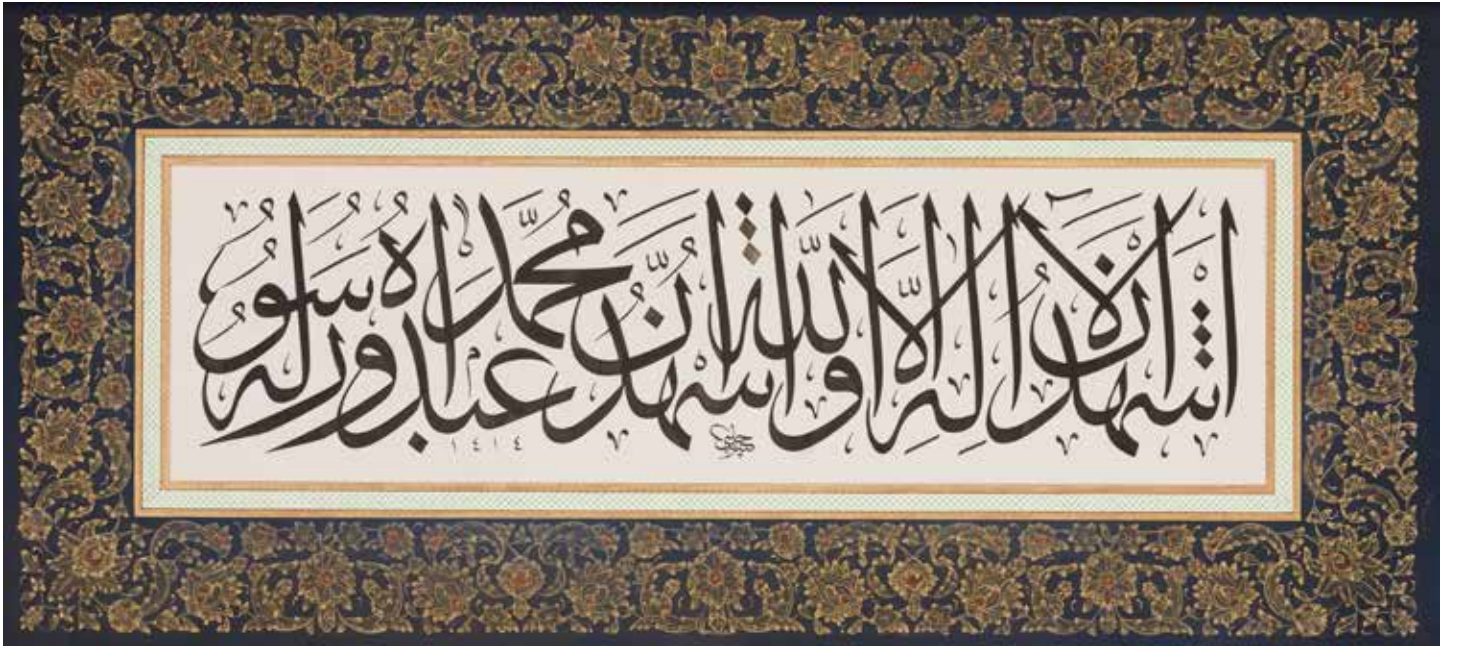 اشهد ان لا اله الا الله واشهد ان محمدا عبده ورسوله
١٤١٤